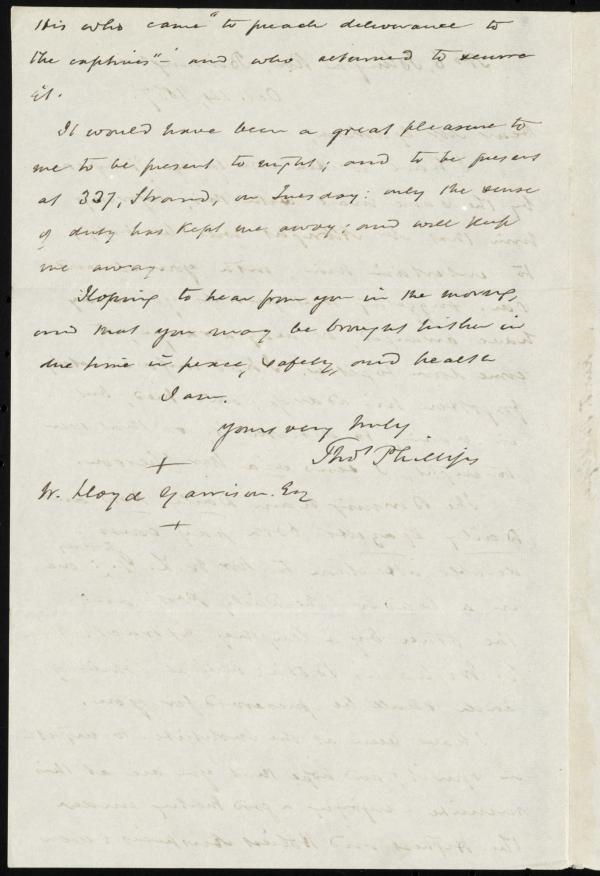 His who came "to preach deliverance to
the captives"- and who returned to secure
it.
It would have been a great pleasure to
me to be present to night; and to be present
at 337, Strand, on Tuesday: only the sense
of duty has kept me away; and will keep
me away.
Hoping to hear from you in the morng,
and that you may be brought hither in
due time in peace, safety, and health
I am.
yours very truly
Thos Phillips
W. Lloyd Garrison. Esq